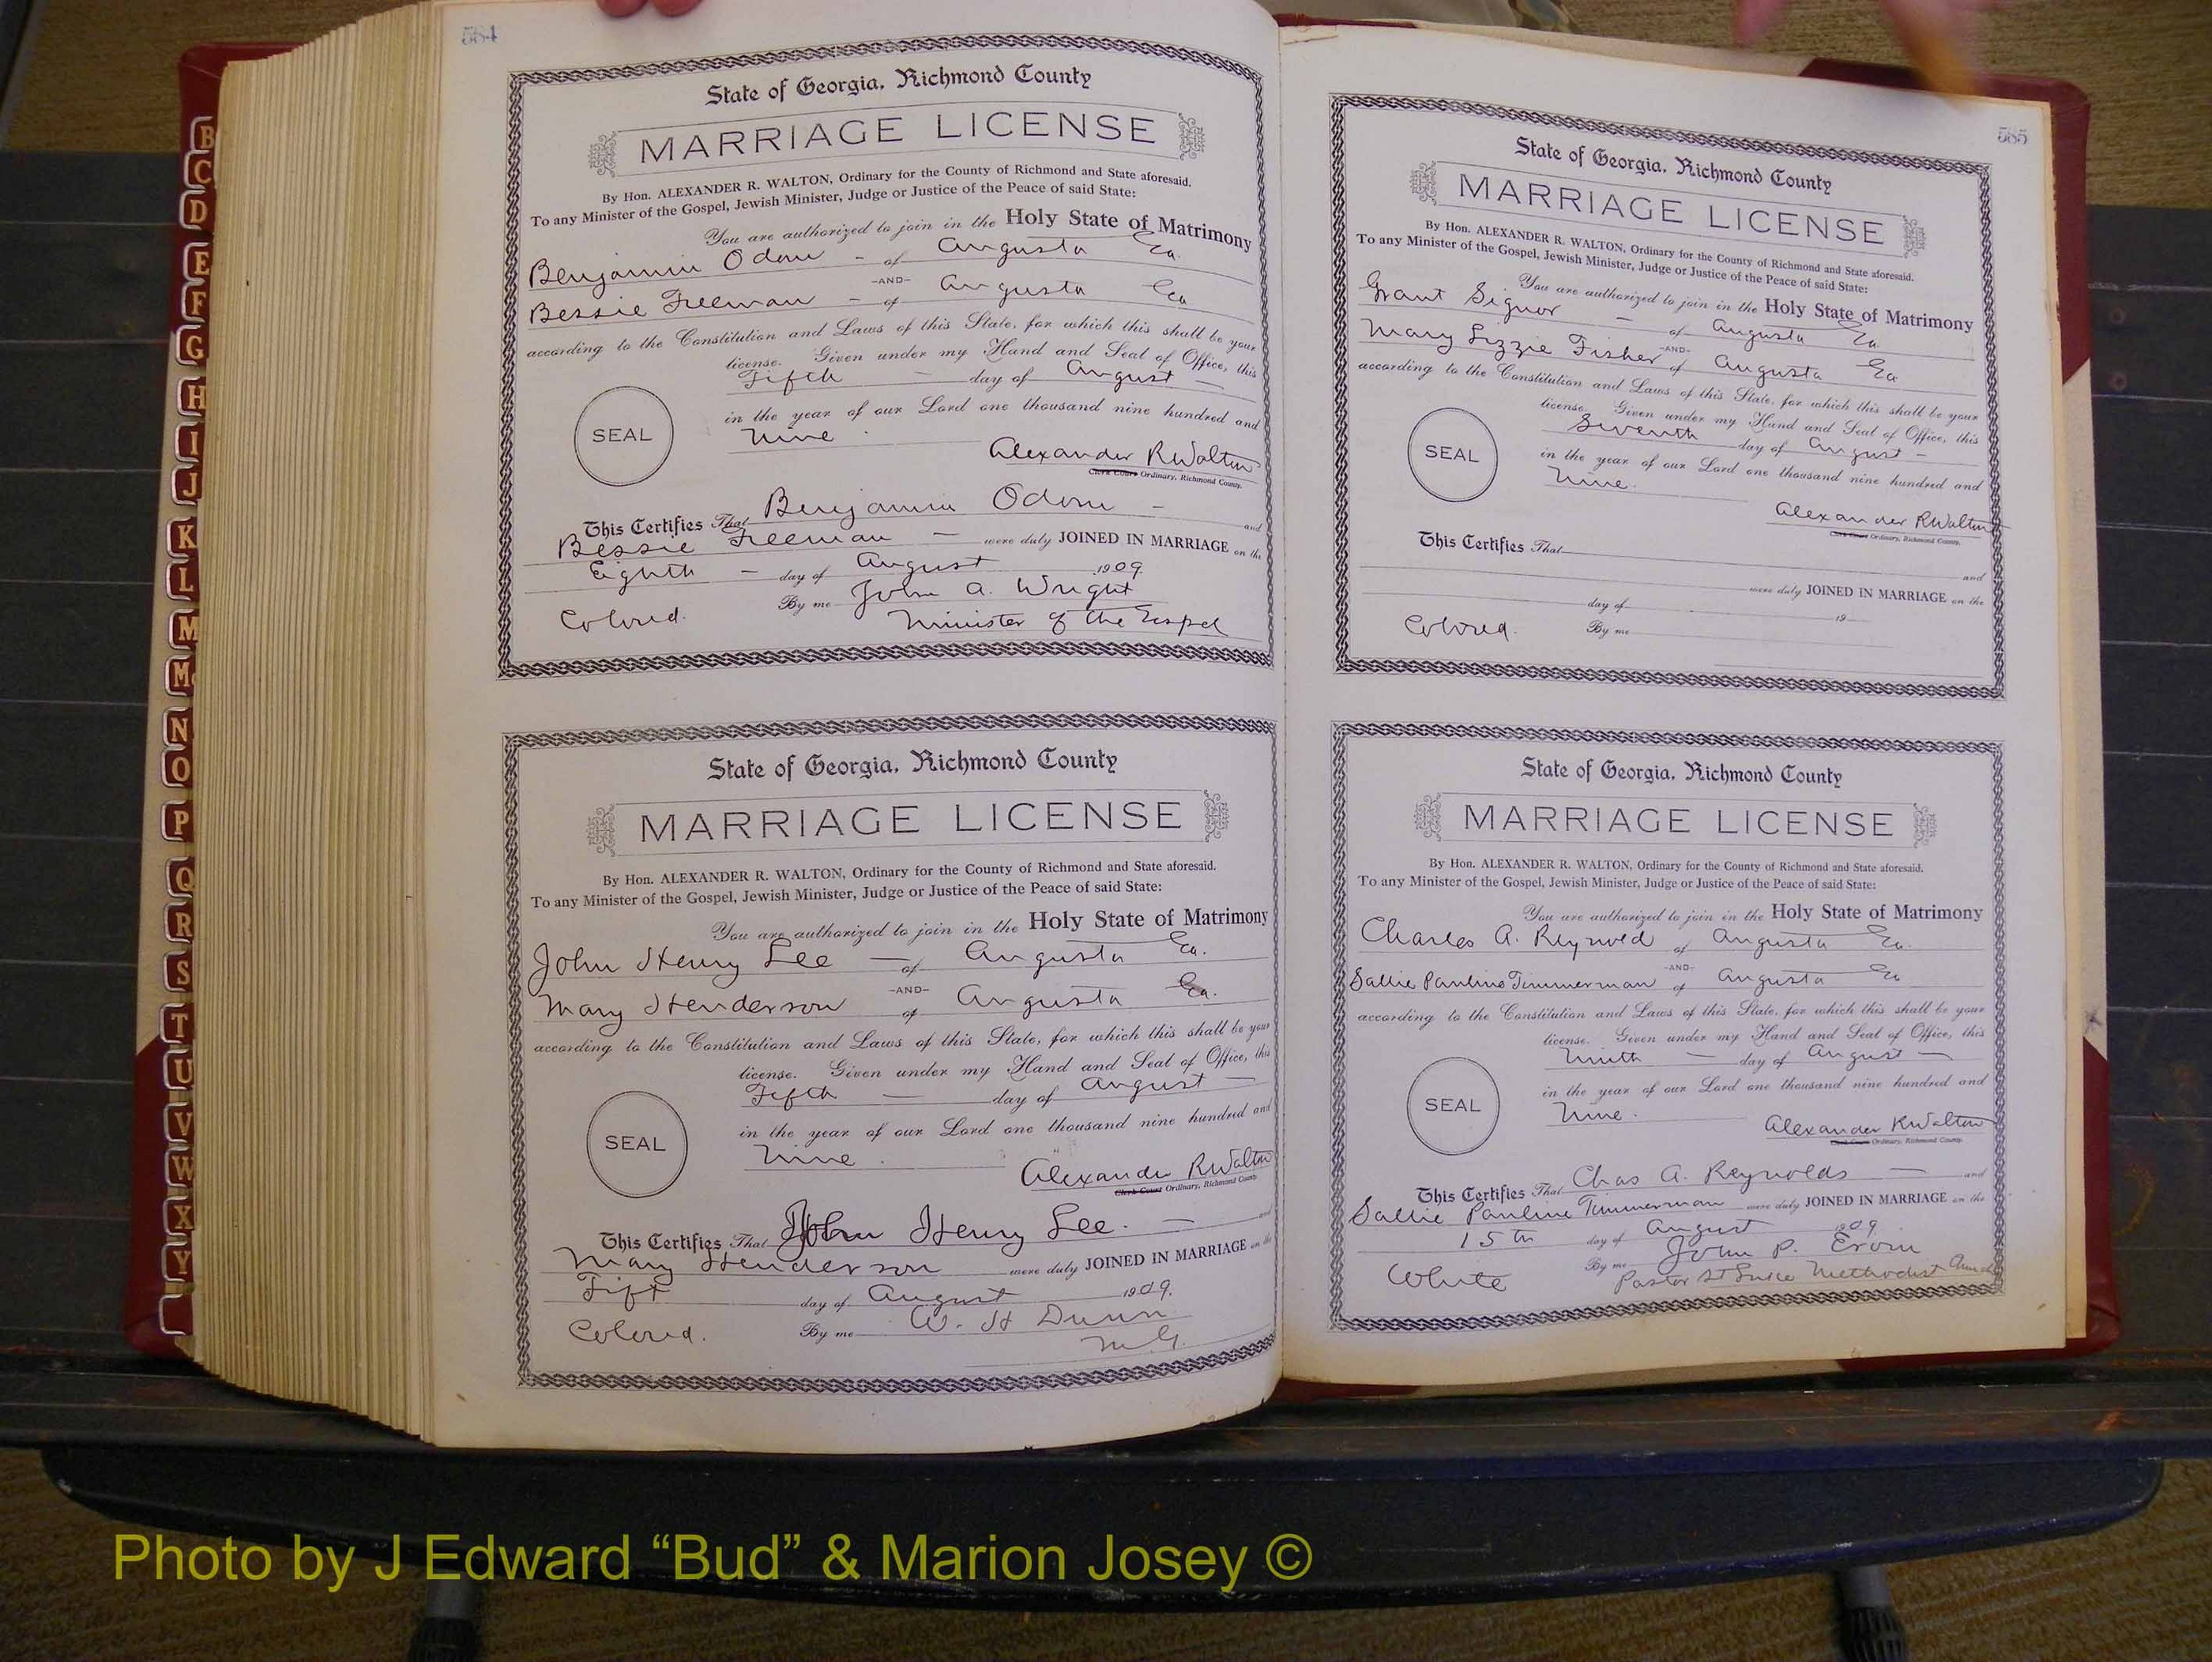 B
C
D
E
F
G
H
I
J
K
L
M
Mc
N
O
P
Q
R
S
T
U
V
W
X
Y
584
State of Georgia, Richmond County
MARRIAGE LICENSE
By Hon. ALEXANDER R. WALTON, Ordinary for the County of Richmond and State aforesaid.
To any Minister of the Gospel, Jewish Minister, Judge or Justice of the Peace of said State:
You are authorized to join in the Holy State of Matrimony
Benjamin Odom - of Augusta Ga.
-AND-
Bessie Freeman - of Augusta Ga
according to the Constitution and Laws of this State, for which this shall be your
license. Given under my Hand and Seal of Office, this
Fifth - day of August -
in the year of our Lord one thousand nine hundred and
Nine.
SEAL
Alexander R Walton
Clerk Court Ordinary, Richmond County.
This Certifies That Benjamin Odom - and
Bessie Freeman - were duly JOINED IN MARRIAGE on the
Eighth - day of August 1909
Colored. By me John A. Wright
Minister of the Gospel
State of Georgia, Richmond County
MARRIAGE LICENSE
By Hon. ALEXANDER R. WALTON, Ordinary for the County of Richmond and State aforesaid.
To any Minister of the Gospel, Jewish Minister, Judge or Justice of the Peace of said State:
You are authorized to join in the Holy State of Matrimony
John Henry Lee - of Augusta Ga.
-AND-
Mary Henderson of Augusta Ga.
according to the Constitution and Laws of this State, for which this shall be your
license. Given under my Hand and Seal of Office, this
Fifth - day of August -
in the year of our Lord one thousand nine hundred and
Nine.
SEAL
Alexander R Walton
Clerk Court Ordinary, Richmond County
This Certifies That John Henry Lee. - and
Mary Henderson were duly JOINED IN MARRIAGE on the
Fift day of August 1909.
Colored. By me W. H Dunn
M.G.
585
State of Georgia, Richmond County
MARRIAGE LICENSE
By Hon. ALEXANDER R. WALTON, Ordinary for the County of Richmond and State aforesaid.
To any Minister of the Gospel, Jewish Minister, Judge or Justice of the Peace of said State:
You are authorized to join in the Holy State of Matrimony
Grant Signor - of Augusta Ga
-AND-
Mary Lizzie Fisher of Augusta Ga
according to the Constitution and Laws of this State, for which this shall be your
license. Given under my Hand and Seal of Office, this
Seventh day of August -
in the year of our Lord one thousand nine hundred and
Nine.
SEAL
Alexander R Walton
Clerk Court Ordinary, Richmond County.
This Certifies That and
were duly JOINED IN MARRIAGE on the
day of 19
Colored. By me
State of Georgia, Richmond County
MARRIAGE LICENSE
By Hon. ALEXANDER R. WALTON, Ordinary for the County of Richmond and State aforesaid.
To any Minister of the Gospel, Jewish Minister, Judge or Justice of the Peace of said State:
You are authorized to join in the Holy State of Matrimony
Charles A. Reynold of Augusta Ga.
-AND-
Sallie Pauline Timmerman of Augusta Ga
according to the Constitution and Laws of this State, for which this shall be your
license. Given under my Hand and Seal of Office, this
Ninth - day of August -
in the year of our Lord one thousand nine hundred and
Nine.
SEAL
Alexander R Walton
Clerk Court Ordinary, Richmond County.
This Certifies That Chas A. Reynolds - and
Sallie Pauline Timmerman were duly JOINED IN MARRIAGE on the
15th day of August 1909
White By me John P. Ervin
Pastor St Luke Methodist Church
Photo by J Edward “Bud” & Marion Josey ©